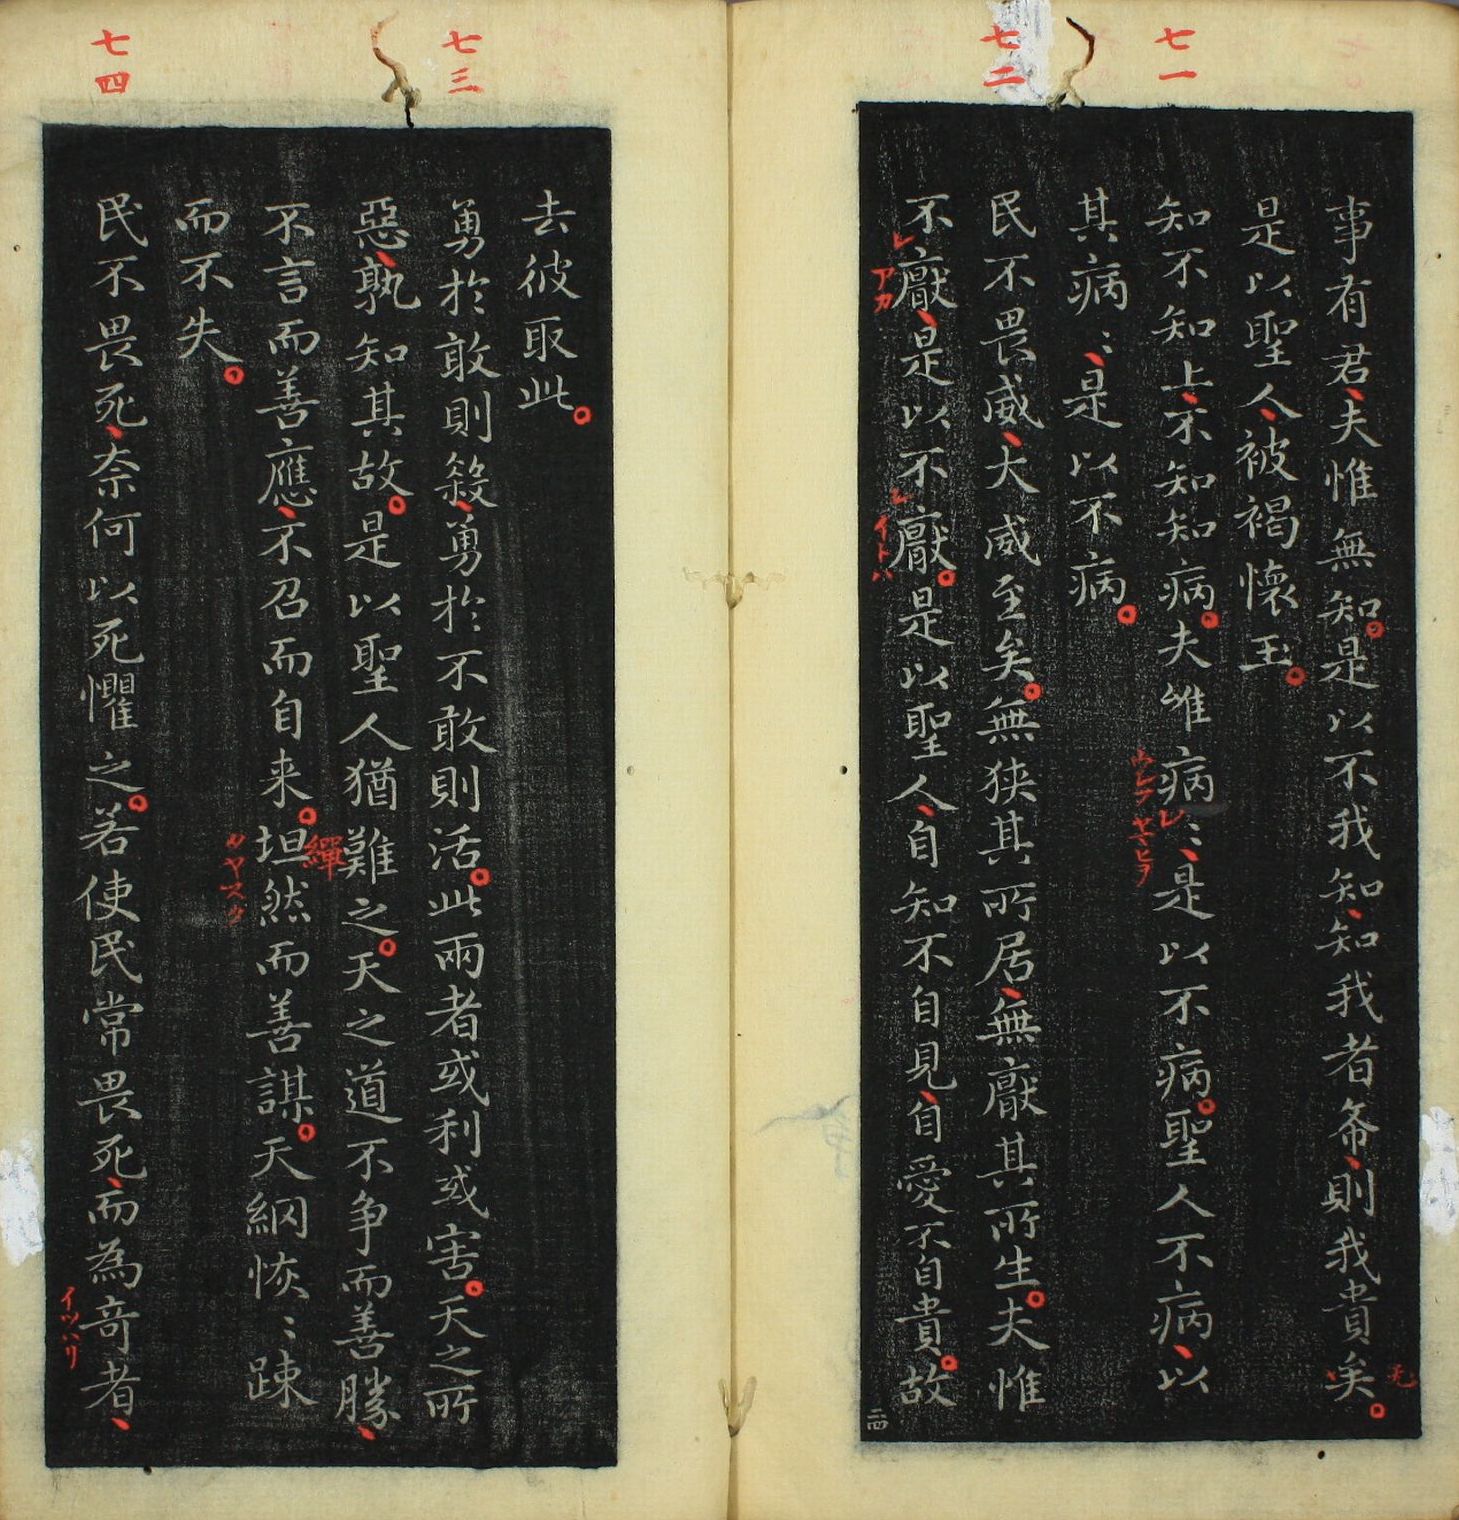 七一
七二
事有君、夫惟無知。是以不我知、知我者希、則我貴矣。
是以聖人、被褐懷玉。
知不知上、不知知病。夫唯病〻、是以不病。聖人不病、以
其病〻、是以不病。
民不畏威、大威至矣。無狹其所居、無厭其所生。夫惟
不厭、是以不厭。是以聖人、自知不自見、自愛不自貴。故
レ
アカ
レ
イトハ
ウレフ
レ
ヤマヒヲ
二四
七三
七四
去彼取此。
勇於敢則殺、勇於不敢則活。此兩者或利或害。天之所
惡、孰知其故。是以聖人猶難之。天之道不争而善勝、
不言而善應、不召而自来。坦然而善謀。天網恢〻踈
而不失。
民不畏死、奈何以死懼之。若使民常畏死、而為竒者、
繟
イツハリ